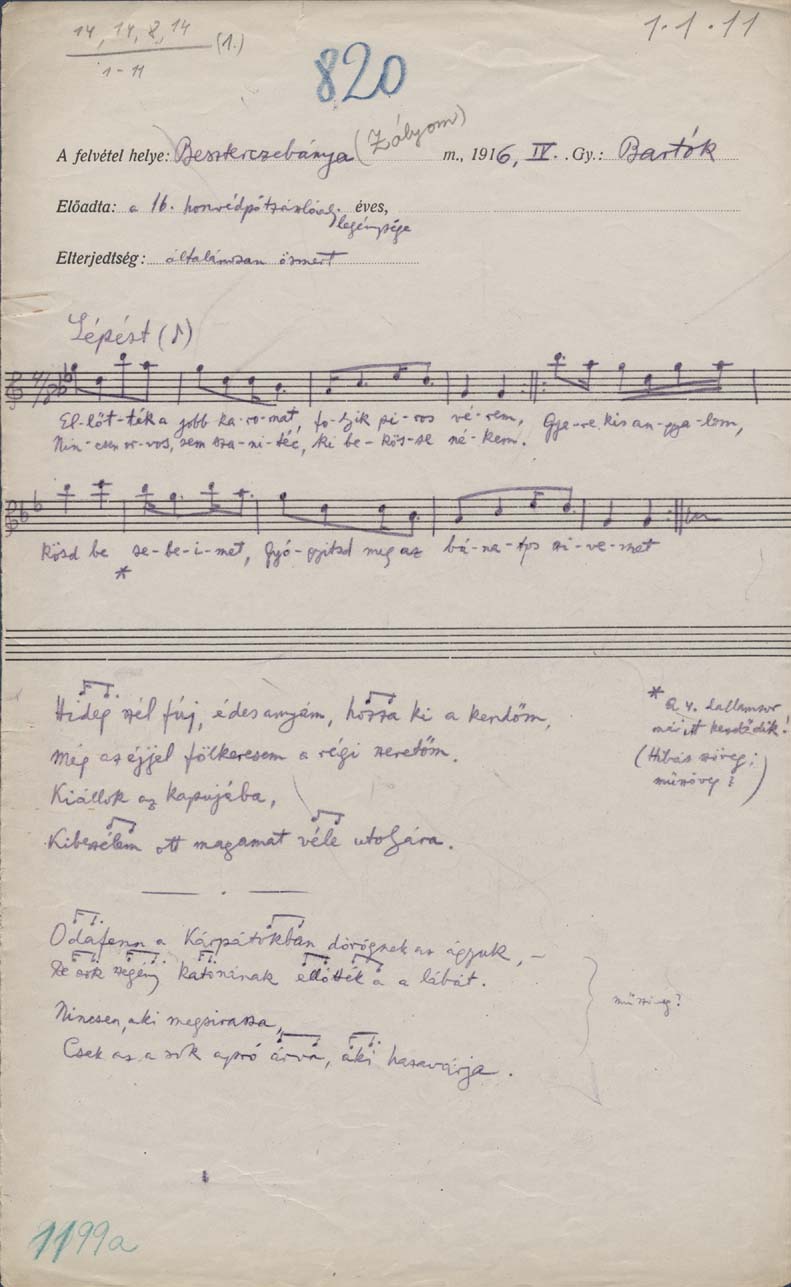 14, 14, 8, 14 (1.)
1-11
1.1.11
820
A felvétel helye: Beszterczebánya (Zólyom) m., 1916, IV. Gy.: Bartók
Előadta: a 16. honvédpótzászlóalj éves,
legénysége
Elterjedtség: általánosan ösmert
Lépést
El-lőt-ték a jobb ka-ro-mat, fo-lyik pi-ros vé-rem, Gye-re kis an-gya-lom,
Nin-csen or-vos, sem sza-ni-téc, ki be-kös-se né-kem.
kösd be se-be-i-met, Gyó-gyitsd meg az bá-na-tos szi-ve-met
*
Hideg szél fúj, édesanyám, hozza ki a kendőm,
Még az éjjel fölkeresem a régi szeretőm.
Kiállok az kapujába,
Kibeszélem ott magamat véle utoljára.
* A 4. dallamsor
már itt kezdődik!
(Hibás szöveg;
műszöveg?)
Odafenn a Kárpátokban dörögnek az ágyuk, –
De sok szegény katonának ellőtték a a lábát.
Nincsen, aki megsirassa,
Csak az a sok apró árva, aki hazavárja.
1199a